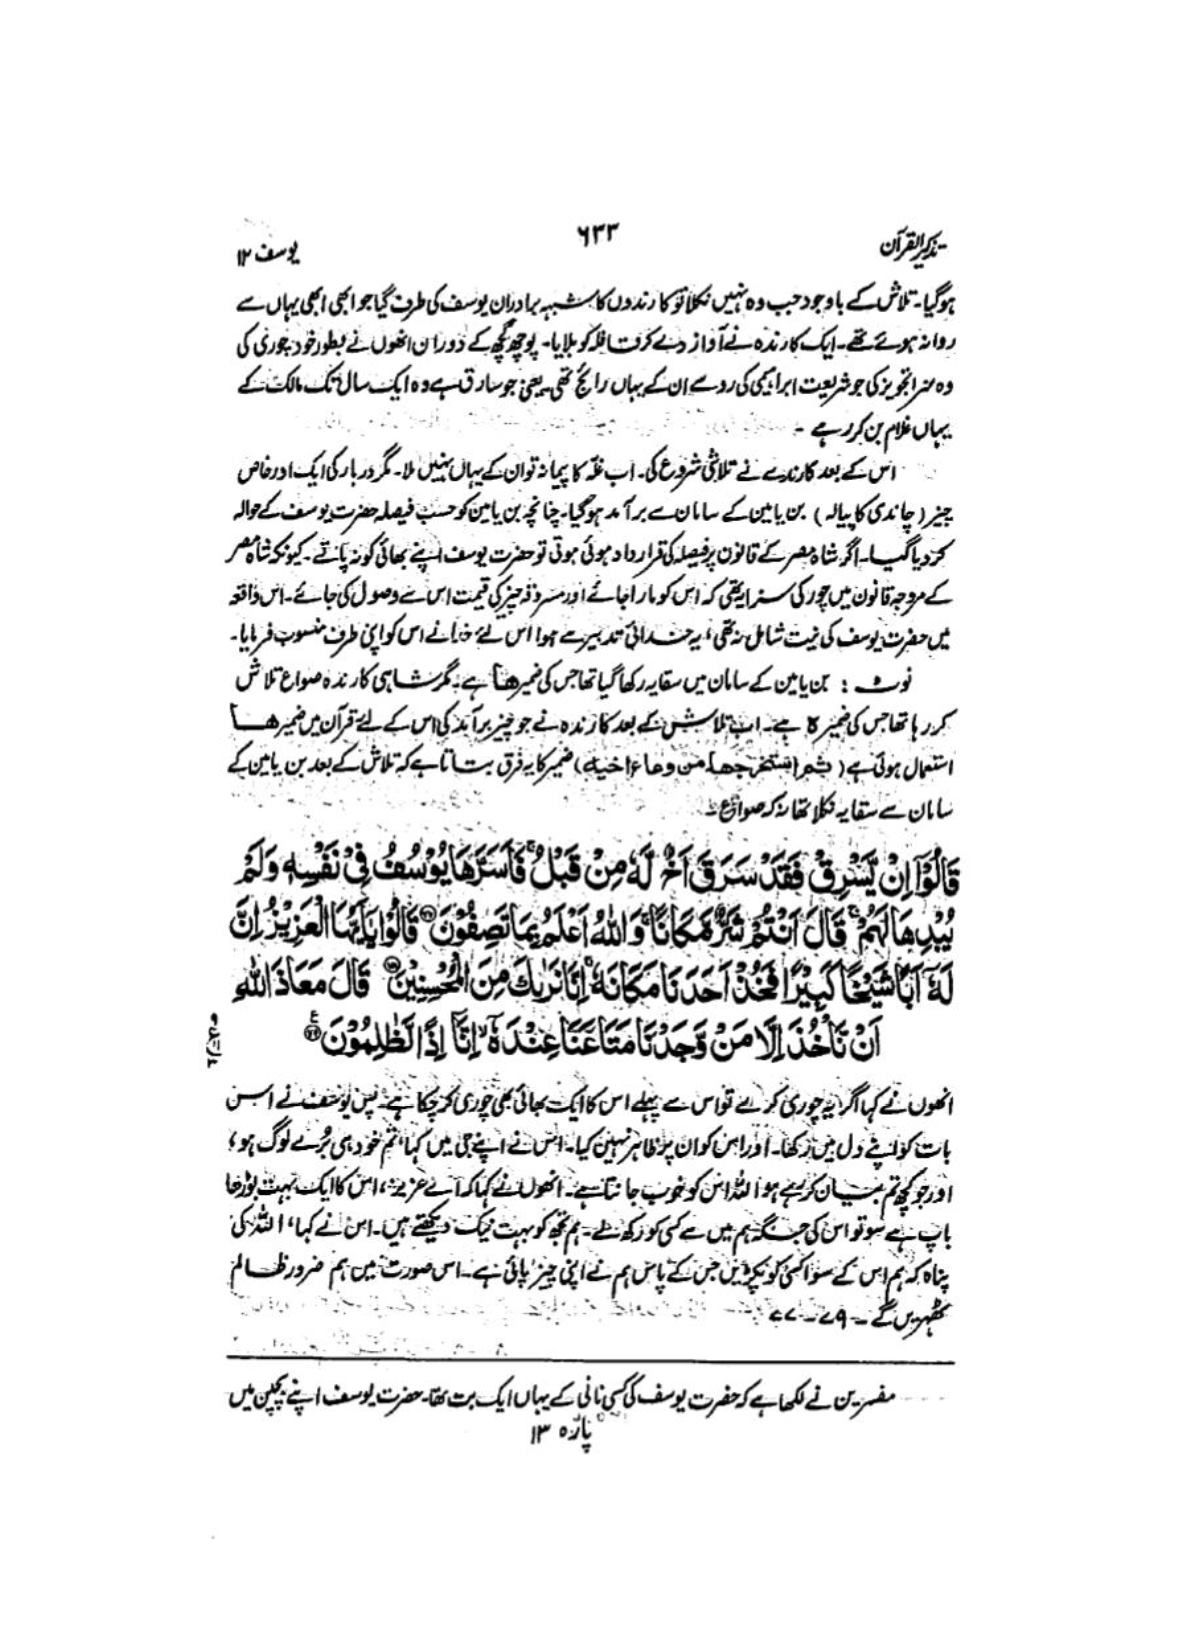 تذکیر القرآن
۶۳۳
یوسف ۱۲
ہوگیا۔ تلاش کے باوجود جب وہ نہیں نکلا تو کارندوں کا شبہہ برادران یوسف کی طرف گیا جو ابھی ابھی یہاں سے
روانہ ہوئے تھے۔ ایک کارندہ نے آواز دے کر قافلہ کو بلایا۔ پوچھ گچھ کے دوران انھوں نے بطور خود چوری کی
وہ سزا تجویز کی جو شریعت ابراہیمی کی رو سے ان کے یہاں رائج تھی۔ یعنی جو سارق ہے وہ ایک سال تک مالک کے
یہاں غلام بن کر رہے۔
اس کے بعد کارندے نے تلاشی شروع کی۔ اب غلّہ کا پیمانہ تو ان کے یہاں نہیں ملا۔ مگر دربار کی ایک اور خاص
چیز (چاندی کا پیالہ) بن یامین کے سامان سے برآمد ہوگیا۔ چنانچہ بن یامین کو حسب فیصلہ حضرت یوسف کے حوالہ
کردیا گیا۔ اگر شاہ مصر کے قانون پر فیصلہ کی قرارداد ہوئی ہوتی تو حضرت یوسف اپنے بھائی کو نہ پاتے۔ کیونکہ شاہ مصر
کے مروجہ قانون میں چور کی سزا یہ تھی کہ اس کو مارا جائے اور مسروقہ چیز کی قیمت اس سے وصول کی جائے۔ اس واقعہ
میں حضرت یوسف کی نیت شامل نہ تھی، یہ خدائی تدبیر سے ہوا اس لئے خدا نے اس کو اپنی طرف منسوب فرمایا۔
نوٹ : بن یامین کے سامان میں سقایہ رکھا گیا تھا جس کی ضمیر ھا ہے۔ مگر شاہی کارندہ صواع تلاش
کر رہا تھا جس کی ضمیر ہ ہے۔ اب تلاش کے بعد کارندہ نے جو چیز برآمد کی اس کے لئے قرآن میں ضمیر ھا
استعمال ہوئی ہے (ثم استخرجها من وعاء اخیه) ضمیر کا یہ فرق بتاتا ہے کہ تلاش کے بعد بن یامین کے
سامان سے سقایہ نکلا تھا نہ کہ صواع۔
قَالُوْٓا اِنْ يَّسْرِقْ فَقَدْ سَرَقَ اَخٌ لَّهٗ مِنْ قَبْلُ ۚ فَاَسَرَّهَا يُوْسُفُ فِيْ نَفْسِهٖ وَلَمْ
يُبْدِهَا لَهُمْ ۚ قَالَ اَنْتُمْ شَرٌّ مَّكَانًا ۚ وَاللّٰهُ اَعْلَمُ بِمَا تَصِفُوْنَ ۝۷۷ قَالُوْا يٰٓاَيُّهَا الْعَزِيْزُ اِنَّ
لَهٗٓ اَبًا شَيْخًا كَبِيْرًا فَخُذْ اَحَدَنَا مَكَانَهٗ ۚ اِنَّا نَرٰىكَ مِنَ الْمُحْسِنِيْنَ ۝۷۸ قَالَ مَعَاذَ اللّٰهِ
اَنْ نَّاْخُذَ اِلَّا مَنْ وَّجَدْنَا مَتَاعَنَا عِنْدَهٗٓ ۙ اِنَّآ اِذًا لَّظٰلِمُوْنَ ۝۷۹
انھوں نے کہا اگر یہ چوری کرے تو اس سے پہلے اس کا ایک بھائی بھی چوری کرچکا ہے۔ پس یوسف نے اس
بات کو اپنے دل میں رکھا۔ اور اس کو ان پر ظاہر نہیں کیا۔ اس نے اپنے جی میں کہا، تم خود ہی برے لوگ ہو،
اور جو کچھ تم بیان کر رہے ہو اللہ اس کو خوب جانتا ہے۔ انھوں نے کہا کہ اے عزیز، اس کا ایک بہت بوڑھا
باپ ہے سو تو اس کی جگہ ہم میں سے کسی کو رکھ لے۔ ہم تجھ کو بہت نیک دیکھتے ہیں۔ اس نے کہا، اللہ کی
پناہ کہ ہم اس کے سوا کسی کو پکڑیں جس کے پاس ہم نے اپنی چیز پائی ہے۔ اس صورت میں ہم ضرور ظالم
ٹھہریں گے۔ ۷۹-۷۷
مفسرین نے لکھا ہے کہ حضرت یوسف کی کسی نانی کے یہاں ایک بت تھا۔ حضرت یوسف اپنے بچپن میں
پارہ ۱۳